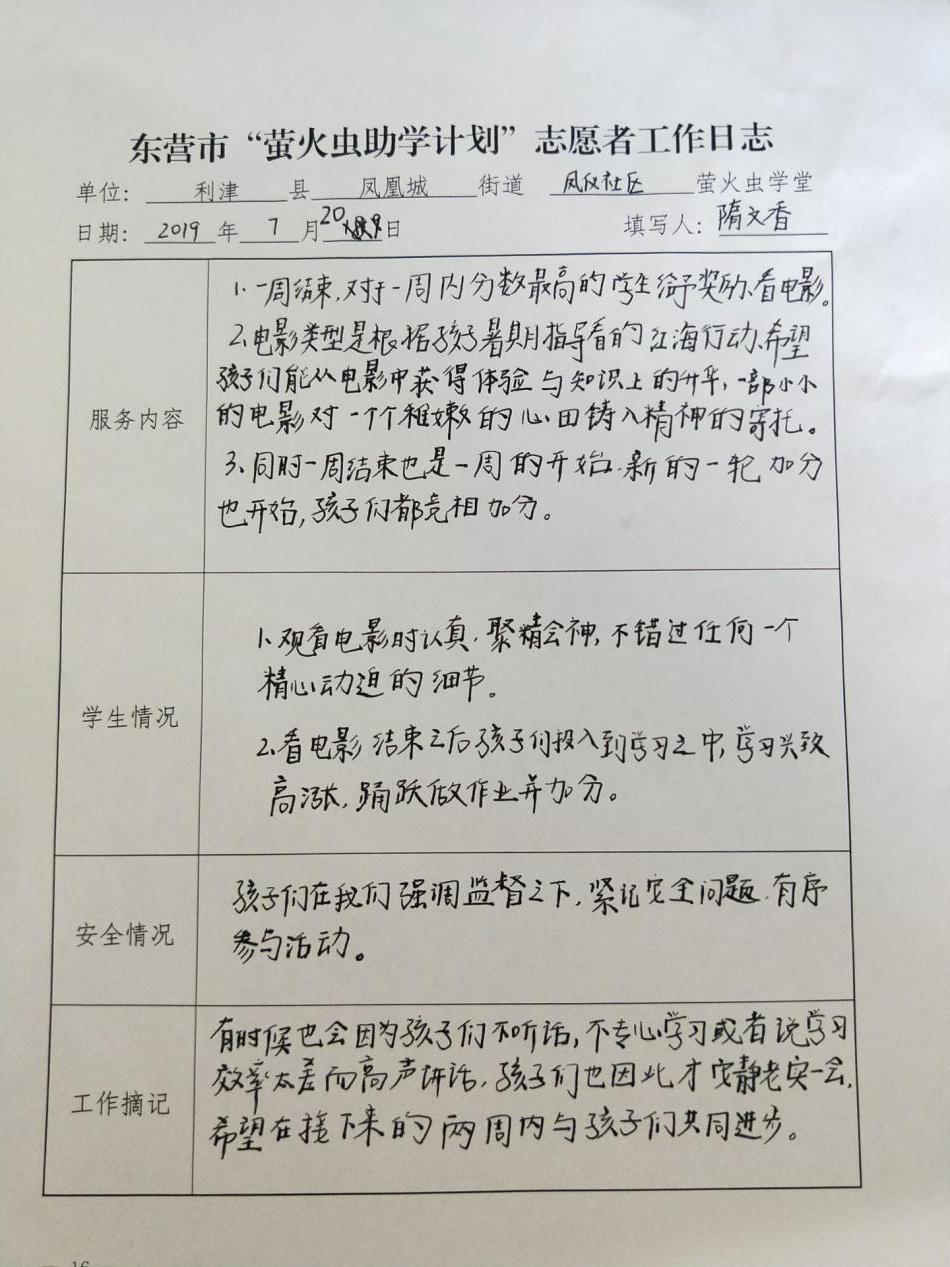 东营市“萤火虫助学计划”志愿者工作日志
单位：利津县凤凰城街道凤仪社区萤火虫学堂
日期：2019年7月20日 填写人：隋文香
服务内容
1.一周结束,对于一周内分数最高的学生给予奖励、看电影。
2.电影类型是根据孩子暑期指导看的红海行动、希望
孩子们能从电影中获得体验与知识上的升华,一部小小
的电影对一个个稚嫩的心田铸入精神的寄托。
3、同时一周结束也是一周的开始.新的一轮加分
也开始,孩子们都竞相加分。
学生情况
1、观看电影时认真.聚精会神,不错过任何一个
精心动迫的细节。
2.看电影结束之后孩子们投入到学习之中,学习兴致
高涨,踊跃做作业并加分。
安全情况
孩子们在我们强调监督之下,紧记安全问题.有序
参与活动。
工作摘记
有时候也会因为孩子们不听话,不专心学习或者说学习
效率太差而高声讲话,孩子们也因此才安静老实一会,
希望在接下来的两周内与孩子们共同进步。
16